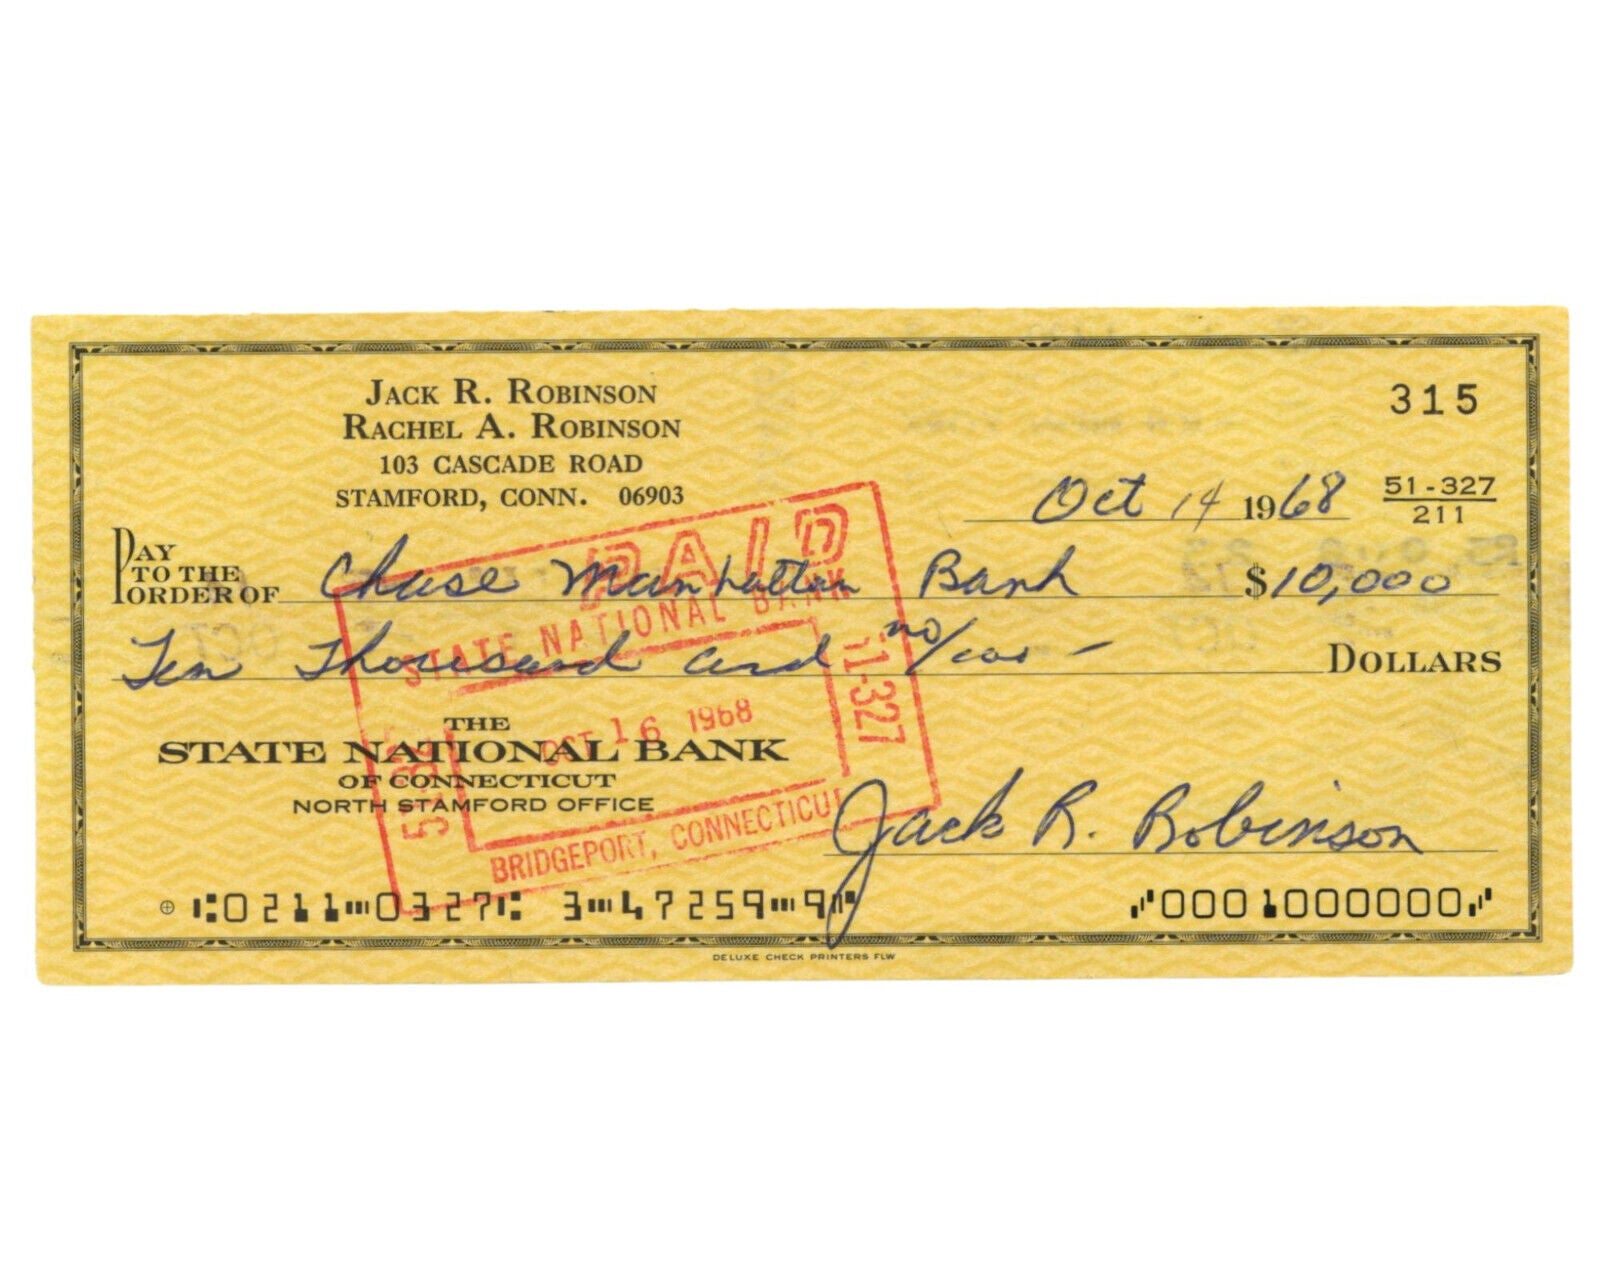 JACK R. ROBINSON
RACHEL A. ROBINSON
103 CASCADE ROAD
STAMFORD, CONN. 06903
315
Oct 14 1968
51-327
211
PAY TO THE ORDER OF Chase Manhattan Bank $10,000
Ten Thousand and no/100 - DOLLARS
PAID
STATE NATIONAL BANK
51-327
OCT 16 1968
51-327
BRIDGEPORT, CONNECTICUT
THE
STATE NATIONAL BANK
OF CONNECTICUT
NORTH STAMFORD OFFICE
Jack R. Robinson
⑆0211⑉0327⑆ 3⑉47259⑉9⑈ ⑈0001000000⑈
DELUXE CHECK PRINTERS FLW